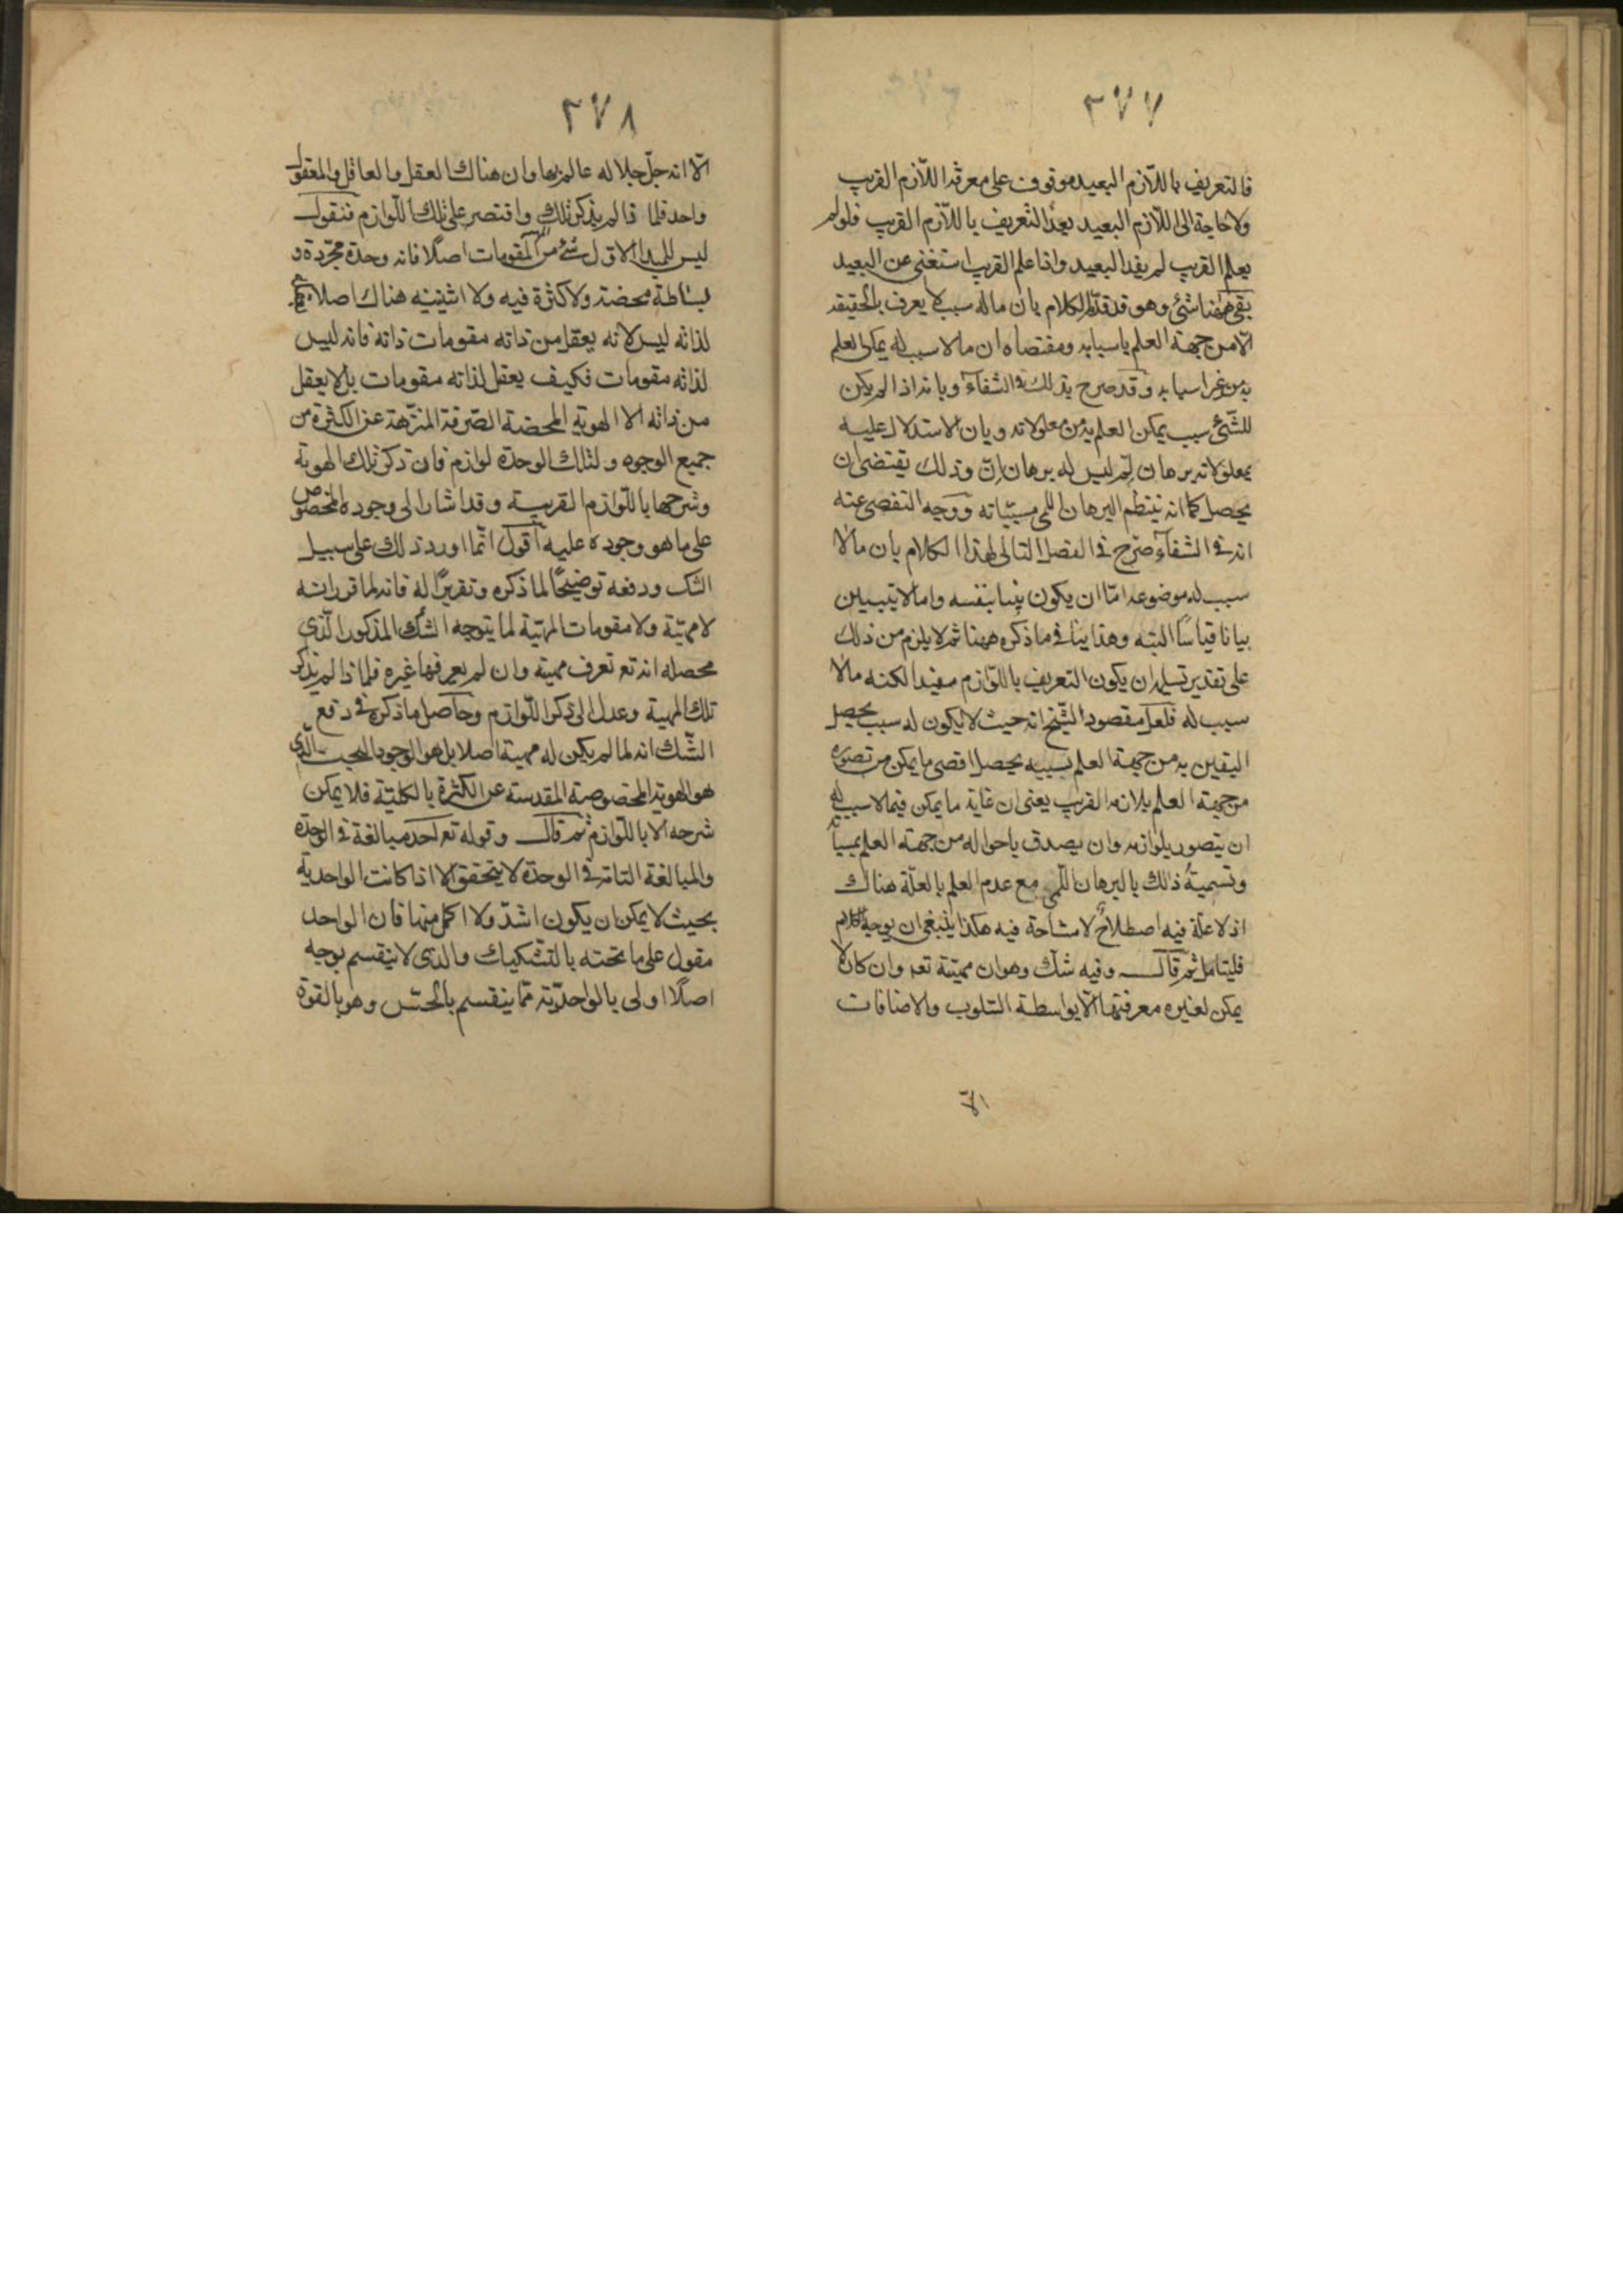 ٢٧٧
فالتعريف باللّازم البعيد موقوف على معرفة اللّازم القريب
ولا حاجة الى اللّازم البعيد بعد التعريف باللّازم القريب فلو لم
يعلم القريب لم يفد البعيد واذا علم القريب استغنى عن البعيد
بقى ههنا شئ وهو قد قدّم الكلام بان ما له سبب لا يعرف بالحقيقة
الّا من جهة العلم باسبابه ومقتضاه ان ما لا سبب له يمكن العلم
به من غير اسبابه وقد صرح بذلك فى الشفآء وبانه اذا لم يكن
للشّئ سبب يمكن العلم به من معلولاته وبان الاستدلال عليه
بمعلولاته برهان لِمّ ليس له برهان اِنّ وذلك يقتضى ان
يحصل كما انه ينتظم البرهان اللمى مسبّباته ووجه التفصى عنه
انه فى الشفآء صرّح فى الفصل التالى لهذا الكلام بان ما لا
سبب له موضوعه امّا ان يكون بيّنا بنفسه واما لا يتبيّن
بيانا قياسًا البته وهذا ينافى ما ذكره ههنا ثم لا يلزم من ذلك
على تقدير تسليمه ان يكون التعريف باللّوازم مفيدا لكنه ما لا
سبب له فلعل مقصود الشّيخ انه حيث لا يكون له سبب يحصل
اليقين به من جهة العلم بسببه يحصل اقصى ما يمكن من تصوره
من جهة العلم بلازمه القريب يعنى ان غاية ما يمكن فيما لا سبب له
ان يتصور بلوازمه وان يصدق باحواله من جهة العلم
وتسمية ذلك بالبرهان اللّمى مع عدم العلم بالعلّة هناك
اذ لا علّة فيه اصطلاحٌ لا مشاحة فيه هكذا ينبغى ان يوجه الكلام
فليتامل ثم قال وفيه شك وهو ان مهيّته تعه وان كان لا
يمكن لغيره معرفتها الّا بواسطة السّلوب والاضافات
الّا
٢٧٨
الّا انه جلّ جلاله عالم بها وان هناك العقل والعاقل والمعقول
واحد فلما ذا لم يذكر تلك واقتصر على تلك اللّوازم فنقول
ليس للمبدا الاوّل شئ من المقومات اصلًا فانه وحدة مجرّدة و
بساطة محضة ولا كثرة فيه ولا اثنينيه هناك اصلا
لذاته ليس لانه يعقل من ذاته مقومات ذاته فانه ليس
لذاته مقومات فكيف يعقل لذاته مقومات بل لا يعقل
من ذاته الا الهوية المحضة الصّرفة المنزّهة عن الكثرة من
جميع الوجوه ولتلك الوحدة لوازم فان ذكر تلك الهوية
وشرحها باللّوازم القريبة وقد اشار الى وجوده المخصوص
على ما هو وجوده عليه اقول انّما اورد ذلك على سبيل
الشك ودفعه توضيحًا لما ذكره وتقريرًا له فانه لما قرر انه
لا مهيّة ولا مقومات المهيّة لما يتوجه الشك المذكور الّذى
محصله انه تع تعرف مهيته وان لم يعرفها غيره فلماذا لم يذكر
تلك المهية وعدل الى ذكر اللّوازم وحاصل ما ذكره فى دفع
الشّك انه لما لم يكن له مهية اصلا بل هو الوجود البحت الّذى
هو الهوية المخصوصة المقدسة عن الكثرة بالكليّة فلا يمكن
شرحه الا باللّوازم ثم قال وقوله تع احد مبالغة فى الوحدة
والمبالغة التامة فى الوحدة لا يتحقق الا اذا كانت الواحدية
بحيث لا يمكن ان يكون اشدّ ولا اكمل منها فان الواحد
مقول على ما تحته بالتّشكيك والذى لا ينقسم بوجه
اصلًا اولى بالواحديّة ممّا ينقسم بالحسّ وهو بالقوة